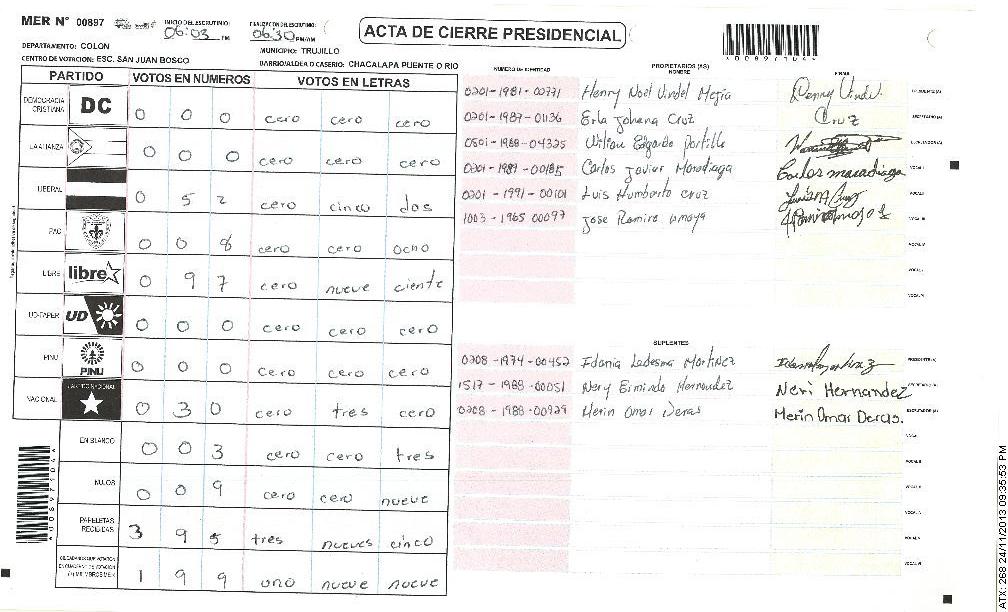 MER N° 00897
INICIO DEL ESCRUTINIO: 06:03 PM
FINALIZACION DEL ESCRUTINIO: 06:30 PM/AM
ACTA DE CIERRE PRESIDENCIAL
DEPARTAMENTO: COLON
MUNICIPIO: TRUJILLO
CENTRO DE VOTACION: ESC. SAN JUAN BOSCO
BARRIO/ALDEA O CASERIO: CHACALAPA PUENTE O RIO
PARTIDO VOTOS EN NUMEROS VOTOS EN LETRAS
DEMOCRACIA CRISTIANA DC 0 0 0 cero cero cero
LA ALIANZA 0 0 0 cero cero cero
LIBERAL 0 5 2 cero cinco dos
PAC 0 0 8 cero cero ocho
LIBRE libre 0 9 7 cero nueve ciente
UD-FAPER UD 0 0 0 cero cero cero
PINU PINU 0 0 0 cero cero cero
NACIONAL PARTIDO NACIONAL 0 3 0 cero tres cero
EN BLANCO 0 0 3 cero cero tres
NULOS 0 0 9 cero cero nueve
PAPELETAS RECIBIDAS 3 9 5 tres nueves cinco
CIUDADANOS QUE VOTARON 1 9 9 uno nueve nueve
NUMERO DE IDENTIDAD PROPIETARIOS (AS) NOMBRE FIRMA
0201-1981-00771 Henry Noel Vindel Mejia PRESIDENTE (A)
0201-1987-01136 Erla Johana Cruz Cruz SECRETARIO (A)
0501-1988-04325 Wilton Edgardo Portillo ESCRUTADOR (A)
0201-1989-00185 Carlos Javier Maradiaga Carlos maradiaga VOCAL I
0201-1991-00101 Luis Humberto Cruz VOCAL II
1003-1965 00097 Jose Ramiro Amaya VOCAL III
VOCAL IV
VOCAL V
VOCAL VI
SUPLENTES
0208-1974-00452 Idania Ledesma Martinez PRESIDENTE (A)
1517-1988-00051 Nery Ermindo Hernandez Neri Hernandez SECRETARIO (A)
0208-1988-00929 Merin Omar Deras Merin Omar Deras. ESCRUTADOR (A)
VOCAL I
VOCAL II
VOCAL III
VOCAL IV
VOCAL V
VOCAL VI
ATX: 268 24/11/2013 09:35:53 PM